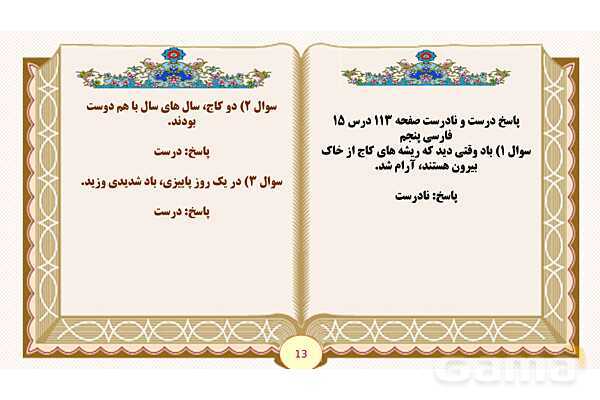 پاسخ درست و نادرست صفحه ۱۱۳ درس ۱۵
فارسی پنجم
سوال ۱) باد وقتی دید که ریشه های کاج از خاک
بیرون هستند، آرام شد.
پاسخ: نادرست
سوال ۲) دو کاج، سال های سال با هم دوست
بودند.
پاسخ: درست
سوال ۳) در یک روز پاییزی، باد شدیدی وزید.
پاسخ: درست
13
Gama